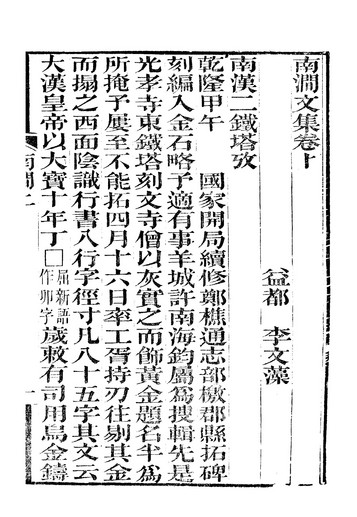 南澗文集卷十
益都　李文藻
南漢二鐵塔攷
乾隆甲午　國家開局續修鄭樵通志部檄郡縣拓碑
刻編入金石略予適有事羊城許南海鈞屬爲搜輯先是
光孝寺東鐵塔刻文寺僧以灰實之而飾黃金題名半爲
所掩予屢至不能拓四月十六日率工胥持刃往剔其金
而搨之西面陰識行書八行字徑寸凡八十五字其文云
大漢皇帝以大寶十年丁□屈新語作卯字歲敕有司用烏金鑄
南澗二